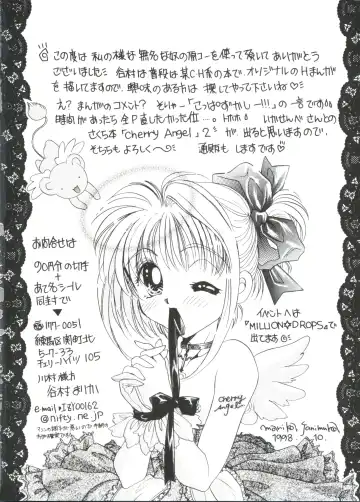 この度は 私の様な 無名な奴の原コーを使って頂いて ありがとう
ございました 谷村は普段は某CH系の本で、オリジナルのHまんが
を描いてますので、興味のある方は 探してやって下さいね♡
え? まんがのコメント? そりゃー「さっぱずかしー!!!」の一言です
時間があったら全P直したかった位…。
さくら本「cherry Angel」2 が 出ると思いますので、
そちらも よろしくー♡ 通販も しますです♡
お問合せは
90円分の切手
+
あて名シール
同封で
〒177-0051
練馬区関町北
5-7-33
チェリーハイツ 105
川村様方
谷村まりか
e-mail
@nifty.ne.jp
イベントへは
『MILLION☆DROPS』で
出てます
cherry
Angel
marika tanimura
1998. 10.